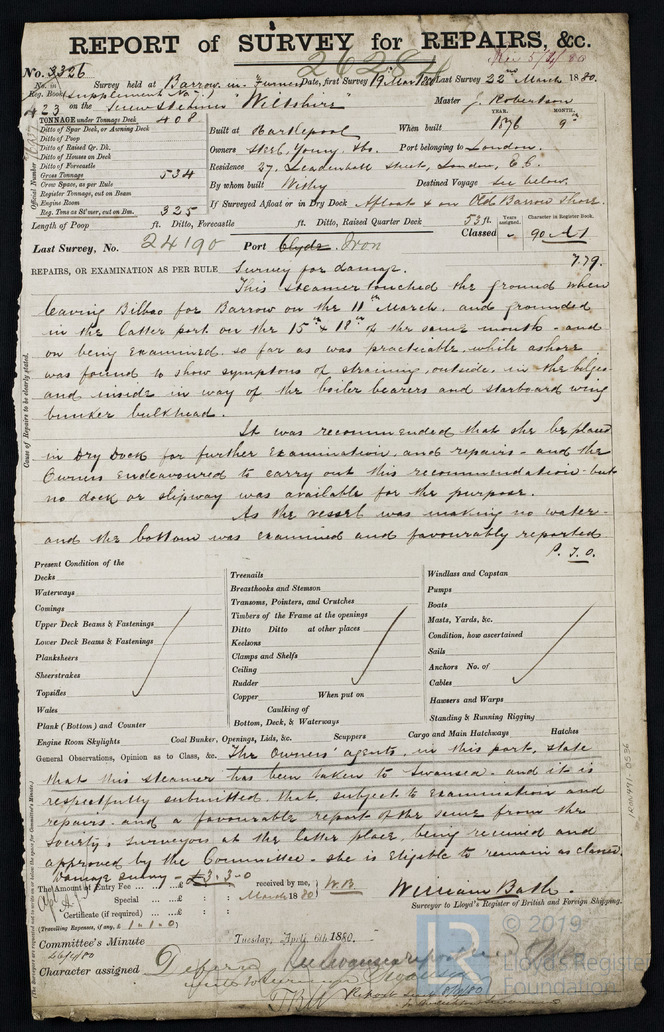 REPORT of SURVEY for REPAIRS, &c.
26284
Rec 5/4/80
No. 3326
No. in Reg. Book Survey held at Barrow-in-Furness Date, first Survey 19th Mar 1880 Last Survey 22nd March 1880.
(Supplement No. 7)
423 on the Screw Steamer "Wiltshire" Master J. Robertson
TONNAGE under Tonnage Deck 408
Ditto of Spar Deck, or Awning Deck
Ditto of Poop
Ditto of Raised Qr. Dk.
Ditto of Houses on Deck
Ditto of Forecastle
Gross Tonnage 534
Crew Space, as per Rule
Register Tonnage, cut on Beam
Engine Room
Reg. Tons as St'mer, cut on Bm. 325
Official Number
YEAR. MONTH.
Built at Hartlepool When built 1876 9th
Owners Steel, Young, & Co. Port belonging to London.
Residence 27, Leadenhall Street, London, E.C.
By whom built Withy Destined Voyage see below.
If Surveyed Afloat or in Dry Dock Afloat & on Old Barrow Shore.
Length of Poop ft. Ditto, Forecastle ft. Ditto, Raised Quarter Deck 53 ft.
Years assigned. Character in Register Book.
Classed 90 A1
Last Survey, No. 24190 Port Clyde Iron
7.79.
REPAIRS, OR EXAMINATION AS PER RULE Survey for damage.
This steamer touched the ground when
leaving Bilbao for Barrow on the 11th March, and grounded
in the latter port on the 15th & 18th of the same month - and
on being examined, so far as was practicable, while ashore
was found to show symptoms of straining, outside, in the bilges
and inside in way of the boiler bearers and starboard wing
bunker bulkhead.
It was recommended that she be placed
in Dry Dock for further examination and repairs - and the
Owners endeavoured to carry out this recommendation - but
no dock or slipway was available for the purpose.
As the vessel was making no water -
and the bottom was examined and favourably reported
P.T.O.
Cause of Repairs to be clearly stated.
Present Condition of the
Decks
Waterways
Comings
Upper Deck Beams & Fastenings
Lower Deck Beams & Fastenings
Planksheers
Sheerstrakes
Topsides
Wales
Plank (Bottom) and Counter
Engine Room Skylights
Treenails
Breasthooks and Stemson
Transoms, Pointers, and Crutches
Timbers of the Frame at the openings
Ditto Ditto at other places
Keelsons
Clamps and Shelfs
Ceiling
Rudder
Copper When put on
Caulking of
Bottom, Deck, & Waterways
Windlass and Capstan
Pumps
Boats
Masts, Yards, &c.
Condition, how ascertained
Sails
Anchors No. of
Cables
Hawsers and Warps
Standing & Running Rigging
Coal Bunker, Openings, Lids, &c. Scuppers Cargo and Main Hatchways Hatches
General Observations, Opinion as to Class, &c. The Owners' agents, in this port, state
that this steamer has been taken to Swansea - and it is
respectfully submitted, that, subject to examination and
repairs - and a favourable report of the same from the
Society's Surveyors at the latter place, being received and
approved by the Committee - she is eligible to remain as classed.
Damage Survey - £3.3.0
The Amount of Entry Fee ... £ : : received by me, W.B.
Special ... £ : : March 1880
Certificate (if required) ... £ : :
(Travelling Expenses, if any, £ 1-1-0)
William Bath.
Surveyor to Lloyd's Register of British and Foreign Shipping.
Committee's Minute Tuesday, April 6th 1880.
Character assigned Deferred
IRON 491-0536
© 2019
LR
Lloyd's Register
Foundation